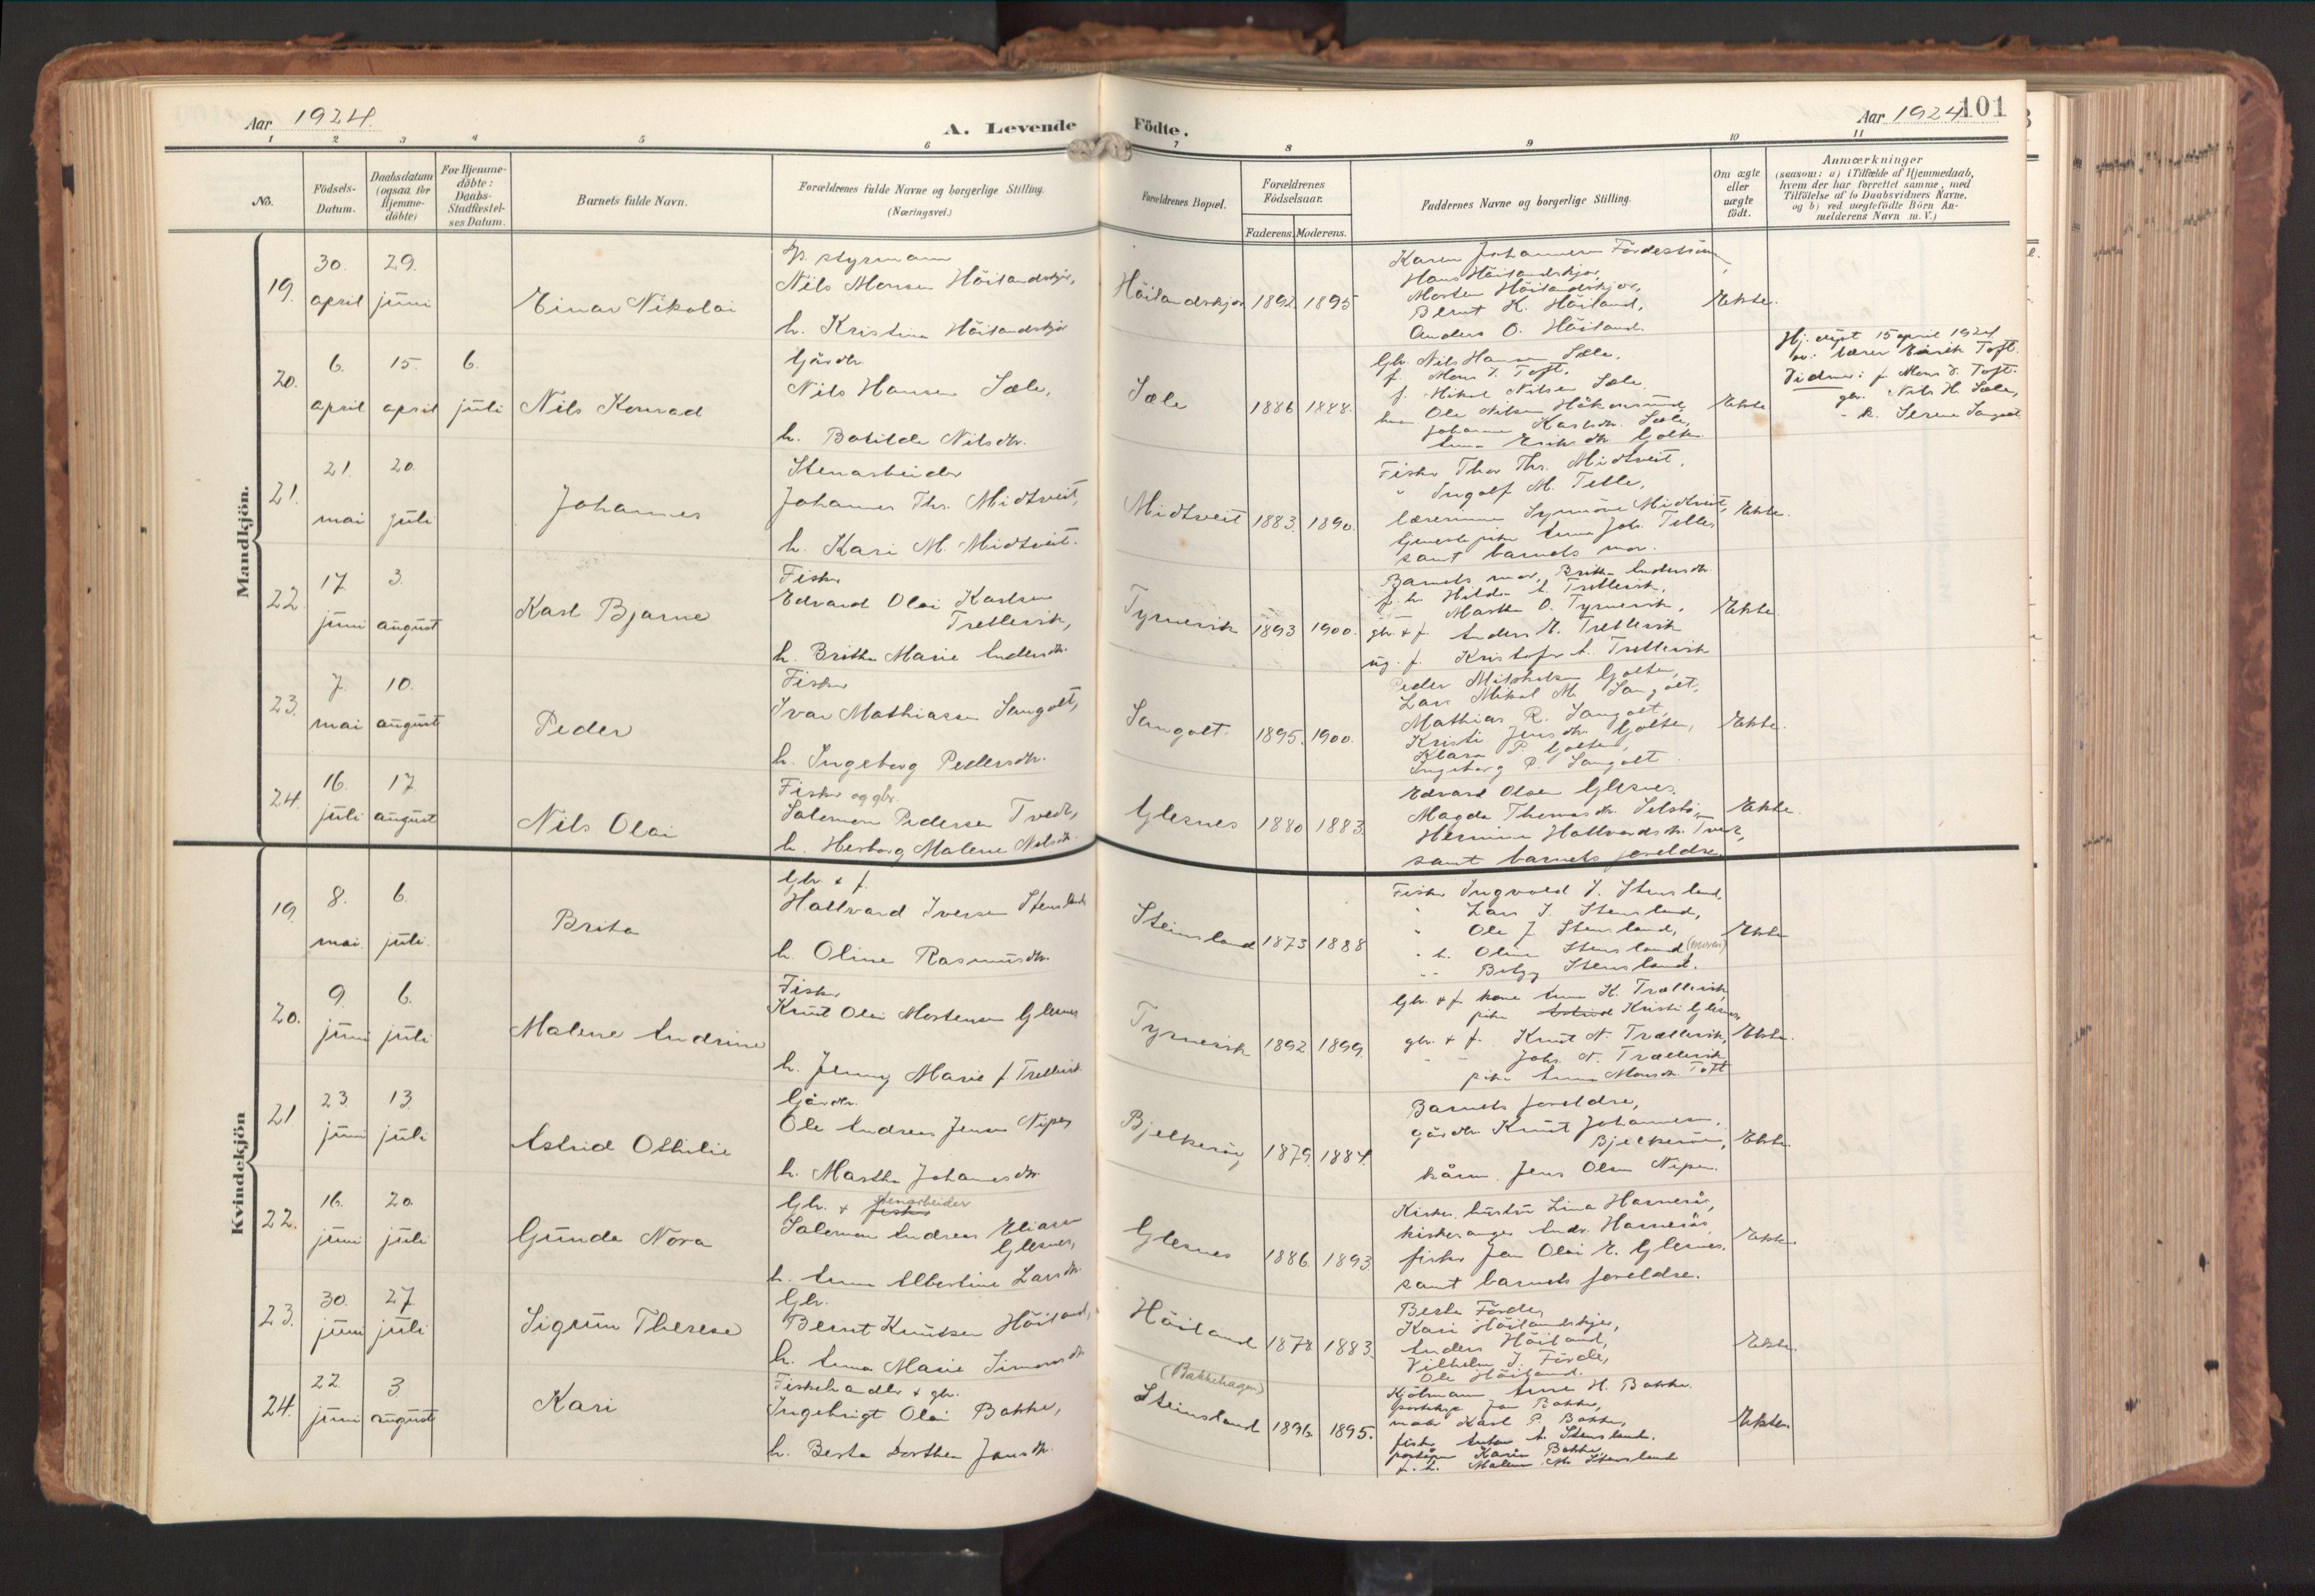 Aar 1924.
A. Levende
Födte.
Aar 1924
101
1 2 3 4 5 6 7 8 9 10 11
No.
Födsels-
Datum.
Daabsdatum
(ogsaa for
Hjemme-
döbte)
For Hjemme-
döbte:
Daabs-
Stadfæstel-
ses Datum.
Barnets fulde Navn.
Forældrenes fulde Navne og borgerlige Stilling.
(Næringsvei.)
Forældrenes Bopæl.
Forældrenes
Födselsaar.
Faderens. Moderens.
Faddernes Navne og borgerlige Stilling.
Om ægte
eller
uægte
födt.
Anmærkninger
(saasom: a) i Tilfælde af Hjemmedaab,
hvem der har forrettet samme, med
Tilföielse af to Daabsvidners Navne.
og b) ved uægtefödte Börn An-
melderens Navn m. V.)
Mandkjön.
19.
30.
april
29.
juni
Einar Nikolai
styrmann
Nils Monsen Höilandskjær,
h. Kristina Höilandskjær
Höilandskjær
1892. 1895
Karen Johannesen Fördestrøm,
Hans Höilandskjær,
Morten Höilandskjær,
Bernt K. Höiland,
Anders O. Höiland.
Ekte.
20.
6.
april
15.
april
6.
juli
Nils Konrad
Gårdbr.
Nils Hansen Sæle,
h. Botilde Nilsdtr.
Sæle
1886 1888.
Gbr. Nils Hansen Sæle,
f. Mons J. Toft,
f. Mikal Nilsen Sæle
Ole Nilsen Håkonsund,
Johanna Karlsdtr. Sæle,
Anna Eriksdtr. Golten.
Ekte
Hj. døpt 15 april 1924
av: lærer Eirik Toft.
Vidner: f. Mons J. Toft.
gbr. Nils H. Sæle,
21.
21.
mai
20.
juli
Johannes
Stenarbeider
Johannes Thr. Midtveit,
h. Kari M. Midtveit.
Midtveit
1883. 1890.
Fisker Thor Thr. Midtveit,
" Ingolf M. Telle,
lærerinne Synnöve Midtveit,
tjenestepike Anna Joh. Telle,
samt barnets mor.
Ekte.
22.
17.
juni
3.
august
Karl Bjarne
Fisker
Edvard Olai Karlsen
Trellevik,
h. Britha Marie Andersdtr.
Tyrnevik
1893 1900.
Barnets mor, Britha Andersdtr.
f. h. Hilda A. Trellevik,
Martha O. Tyrnevik,
gbr. & f. Anders E. Trellevik
ug. f. Kristofer A. Trellevik
Ekte.
23.
7.
mai
10.
august
Peder
Fisker
Ivar Mathiasen Sangolt,
h. Ingeborg Pedersdtr.
Sangolt.
1895. 1900.
Peder Mikkelsen Golten,
Lars Mikal M. Sangolt,
Mathias R. Sangolt,
Kristi Jensdtr. Golten,
Klara P. Golten,
Ingeborg P. Sangolt.
Ekte.
24.
16.
juli
17.
august
Nils Olai
Fisker og gbr.
Salemon Pedersen Tvedt,
h. Herborg Malene Nilsdtr.
Glesnes
1880 1883.
Edvard Olsen Glesnes.
Magda Thomasdtr. Selstö,
Hermine Hallvardsdtr. Tvedt,
samt barnets foreldre.
Ekte.
Kvindekjön
19.
8.
mai
6.
juli.
Brita
Gbr. & f.
Hallvard Iversen Stensland
h. Oline Rasmusdtr.
Steinsland
1873 1888
Fisker Ingvald I. Stensland,
" Lars I. Stensland,
" Ole J. Stensland,
" h. Oline Stensland (moren)
" " Stensland.
Ekte
20.
9.
juni
6.
juli
Malene Andrine
Fisker
Knut Olai Mortensen Glesnes
h. Jenny Marie f Trellevik
Tyrnevik
1892 1899.
Gbr. & f. kone Anna K. Trællevik,
pike Astrid Kristi Glesnes
gbr. & f. Knut N. Trællevik,
" " Johs. N. Trællevik
pike Anna Monsdtr. Toft
Ekte.
21
23.
juni
13.
juli
Astrid Othilie
Gårdbr.
Ole Andreas Jensen Nipen
h. Martha Johannesdtr.
Bjelkeröy
1879. 1884.
Barnets foreldre,
gårdbr. Knut Johannesen
Bjelkeröen,
kårm. Jens Olsen Nipen.
Ekte.
22.
16.
juni
20.
juli
Gunda Nora
Gbr. & fisker stenarbeider
Salemon Andreas Eliasen
Glesnes,
h. Anna Albertine Larsdtr.
Glesnes
1886. 1893
Kirkes. hustru Lina Hamerås,
kirkesanger Andr. Hamerås
fisker Jan Olai E. Glesnes.
samt barnets foreldre.
Ekte.
23.
30.
juni
27.
juli
Sigrun Therese
Gbr.
Bernt Knutsen Höiland,
h. Anna Marie Simonsdtr.
Höiland
1878 1883.
Berta Förde,
Kari Höilandskjær,
Anders Höiland,
Vilhelm J. Förde,
Ole Höiland.
Ekte.
24.
22.
juni
3
august
Kari
Fiskehandler & gbr.
Ingebrigt Olai Bakke,
h. Berta Dorthea Jansdtr.
(Bakkehagen)
Steinsland
1896. 1895.
Kjöbmann Arne H. Bakke.
Jan Bakke,
Karl P. Bakke,
fisker Anton A. Stensland.
Karin Bakke,
Malene M. Stensland
Ekte.